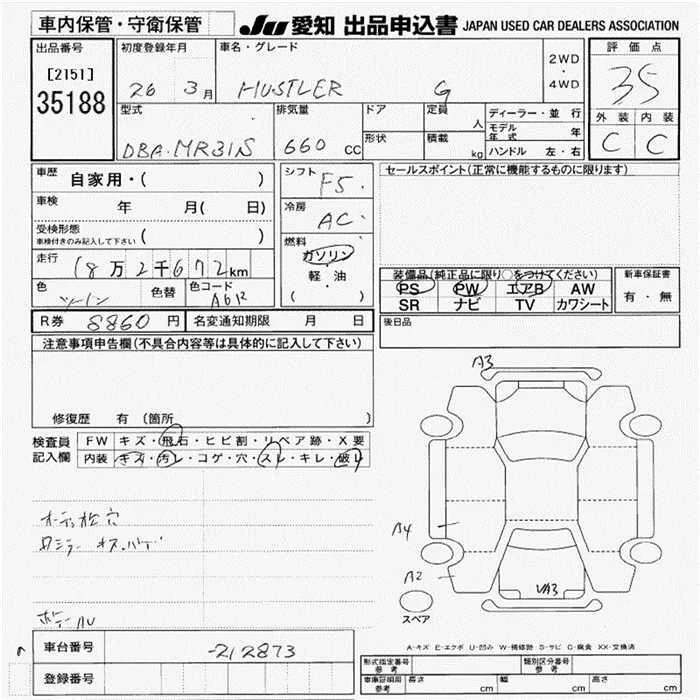 車内保管・守衛保管 JU 愛知 出品申込書 JAPAN USED CAR DEALERS ASSOCIATION
出品番号 初度登録年月 車名・グレード 2WD・4WD 評価点
[2151] 26 3月 HUSTLER G 35
35188
型式 排気量 ドア 定員 人 ディーラー・並行 外装 内装
DBA-MR31S 660cc 形状 積載 kg モデル年式 年 C C
ハンドル 左・右
車歴 自家用・( ) シフト F5 セールスポイント(正常に機能するものに限ります)
車検 年 月( 日) 冷房 AC
受検形態 車検付きのみ記入して下さい ( )
走行 18万2千672km 燃料 ガソリン・軽・油 ( )
装備品(純正品に限り○をつけてください) 新車保証書
色 ツートン 色替 色コード A6R PS PW エアB AW 有・無
SR ナビ TV カワシート
R券 8860円 名変通知期限 月 日 後日品
注意事項申告欄(不具合内容等は具体的に記入して下さい)
A3
修復歴 有 (箇所 )
検査員記入欄 FW キズ・飛石・ヒビ割・リペア跡・X要
内装 キズ・汚レ・コゲ・穴・スレ・キレ・破レ
A4
A2
VA3
スペア
A-キズ E-エクボ U-凹み W-補修跡 S-サビ C-腐食 XX-交換済
車台番号 -212873
登録番号
形式指定番号 参考 類別区分番号 参考
車庫証明用 参考 長さ cm 幅 cm 高さ cm